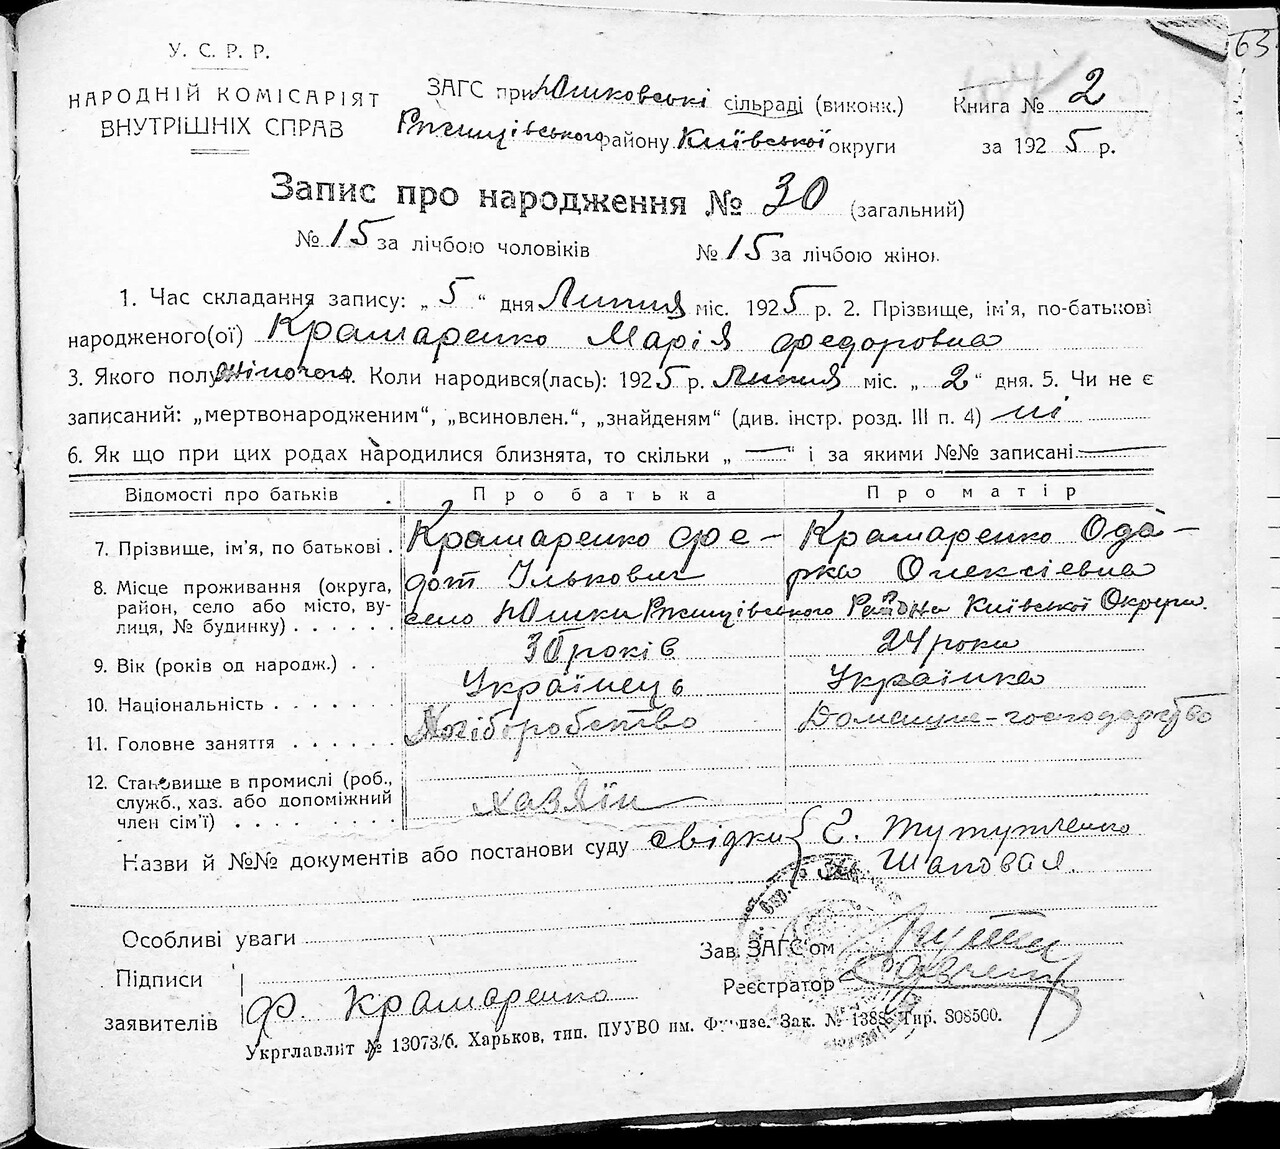 63
У. С. Р. Р.
НАРОДНІЙ КОМІСАРІЯТ
ВНУТРІШНІХ СПРАВ
ЗАГС при Юшковські сільраді (виконк.)
Ржищівського району Київської округи
Книга № 2
за 1925 р.
Запис про народження № 30 (загальний)
№ 15 за лічбою чоловіків № 15 за лічбою жінок.
1. Час складання запису: „ 5 “ дня Липня міс. 1925 р. 2. Прізвище, ім’я, по-батькові
народженого(ої) Крамаренко Марія Федоровна
3. Якого полу жіночого. Коли народився(лась): 1925 р. Липня міс. „ 2 “ дня. 5. Чи не є
записаний: „мертвонародженим“, „всиновлен.“, „знайденям“ (див. інстр. розд. III п. 4) ні
6. Як що при цих родах народилися близнята, то скільки „ — “ і за якими №№ записані —
Відомості про батьків Про батька Про матір
7. Прізвище, ім’я, по батькові . Крамаренко Фе- Крамаренко Ода-
дот Ількович рка Олексієвна
8. Місце проживання (округа,
район, село або місто, ву-
лиця, № будинку) . . . . . . село Юшки Ржищівського Района Київської Округи.
9. Вік (років од народж.) . . 30 років 24 роки
10. Національність . . . . . . . Українець Українка
11. Головне заняття . . . . . . Хліборобство Домашнє-господарство
12. Становище в промислі (роб.,
служб., хаз. або допоміжний
член сім’ї) . . . . . . . . . Хазяїн
Назви й №№ документів або постанови суду свідки { Є. Тутученко
Шаповал.
Особливі уваги
Зав. ЗАГС’ом
Підписи
заявителів Ф. Крамаренко
Реєстратор
Укрглавліт № 13073/б. Харьков, тип. ПУУВО им. Фрунзе. Зак. № 1388. Тир. 808500.